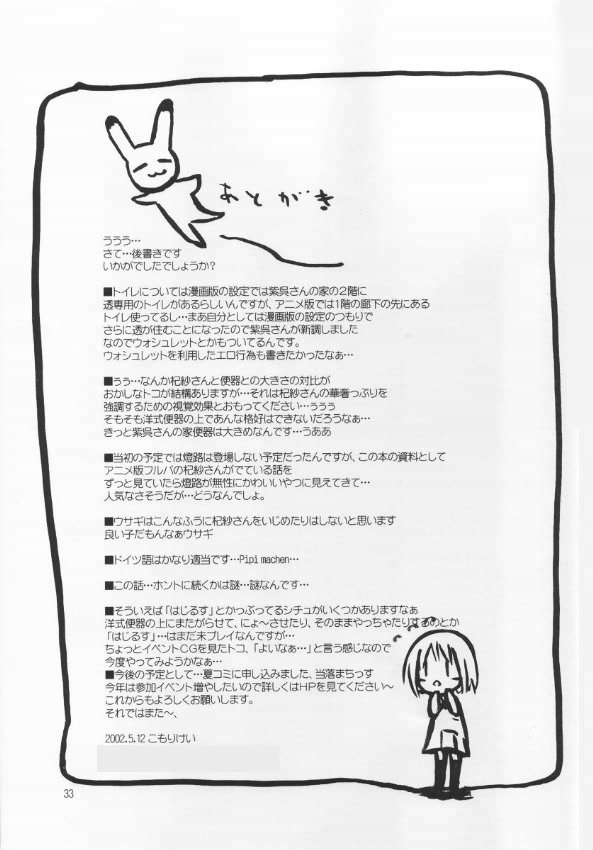 あとがき
ううう…
さて…後書きです
いかがでしたでしょうか？
■トイレについては漫画版の設定では紫呉さんの家の２階に
透専用のトイレがあるらしいんですが、アニメ版では１階の廊下の先にある
トイレ使ってるし…まあ自分としては漫画版の設定のつもりで
さらに透が住むことになったので紫呉さんが新調しました
なのでウォシュレットとかもついてるんです。
ウォシュレットを利用したエロ行為も書きたかったなぁ…
■うぅ…なんか杞紗さんと便器との大きさの対比が
おかしなトコが結構ありますが…それは杞紗さんの華奢っぷりを
強調するための視覚効果とおもってください…ぅぅぅ
そもそも洋式便器の上であんな格好はできないだろうなぁ…
きっと紫呉さんの家便器は大きめなんです…うああ
■当初の予定では燈路は登場しない予定だったんですが、この本の資料として
アニメ版フルバの杞紗さんがでている話を
ずっと見ていたら燈路が無性にかわいいやつに見えてきて…
人気なさそうだが…どうなんでしょ。
■ウサギはこんなふうに杞紗さんをいじめたりはしないと思います
良い子だもんなぁウサギ
■ドイツ語はかなり適当です…Pipi machen…
■この話…ホントに続くかは謎…謎なんです…
■そういえば「はじるす」とかぶってるシチュがいくつかありますなぁ
洋式便器の上にまたがらせて、にょ～させたり、そのままやっちゃたりするのとか
「はじるす」…はまだ未プレイなんですが…
ちょっとイベントCGを見たトコ、「よいなぁ…」と言う感じなので
今度やってみようかなぁ…
■今後の予定として…夏コミに申し込みました、当落まちっす
今年は参加イベント増やしたいので詳しくはHPを見てください～
これからもよろしくお願いします。
それではまた～、
2002.5.12 こもりけい
33